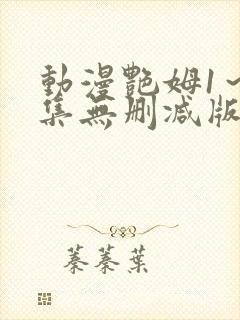 動漫艷姆1～
集無刪減版
蓁蓁葉